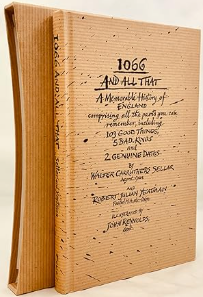 1066
AND ALL THAT
A Memorable History of
ENGLAND
comprising all the parts you can
remember, including
103 GOOD THINGS,
5 BAD KINGS
and
2 GENUINE DATES
BY
WALTER CARRUTHERS SELLAR
AND
ROBERT JULIAN YEATMAN
ILLUSTRATED BY
JOHN REYNOLDS
1066 AND ALL THAT